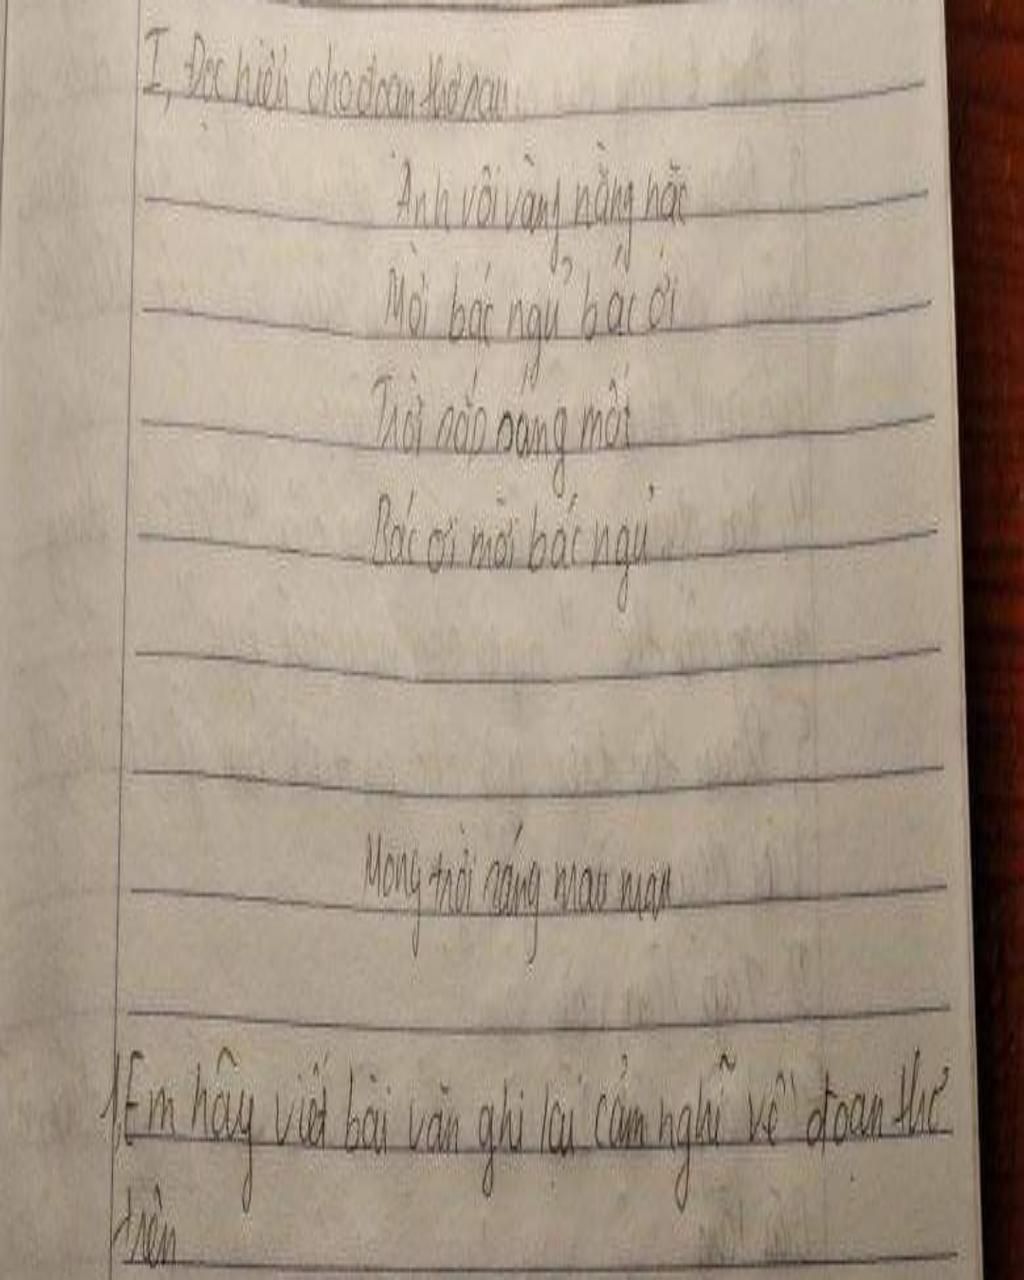 I, Đọc hiểu cho đoạn thơ sau
Anh vội vàng nằng nặc
Mời bác ngủ bác ơi
Trời sắp sáng mời
Bác ơi mời bác ngủ
Mong trời sáng mau mau
1, Em hãy viết bài văn ghi lại cảm nghĩ về đoạn thơ
trên